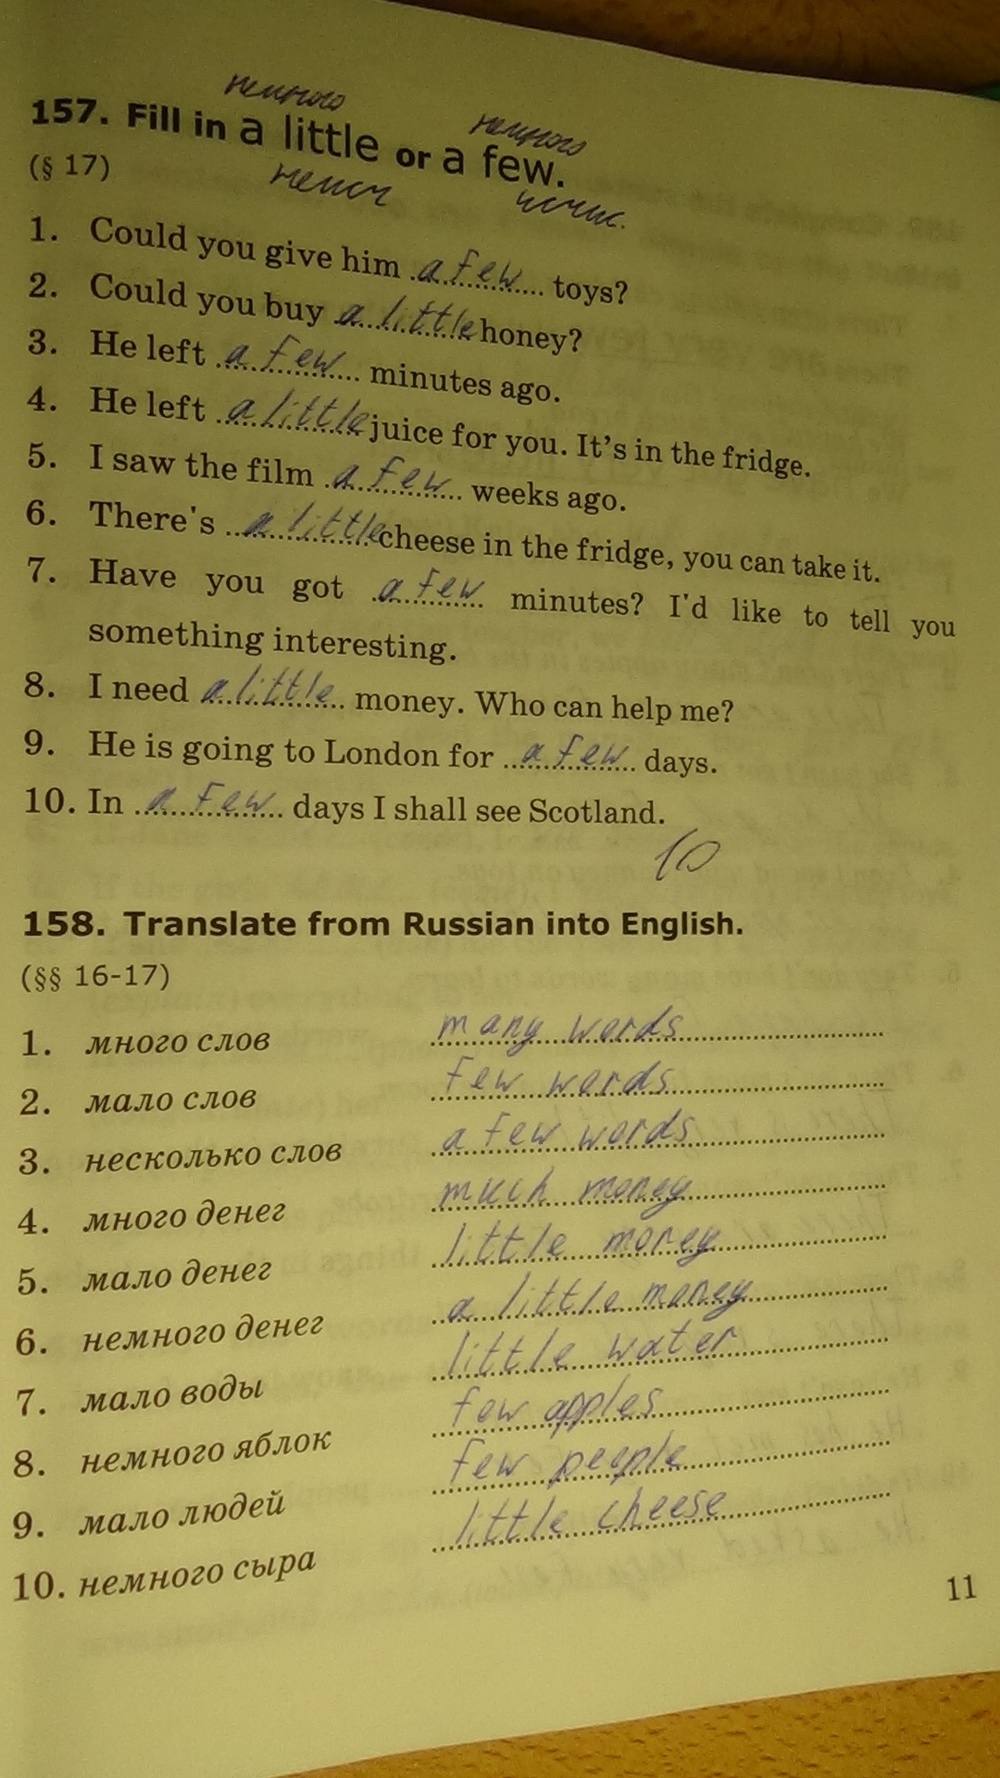 немного
157. Fill in a little or a few.
немного
(§ 17)
неисч
исчис.
1. Could you give him a few toys?
2. Could you buy a little honey?
3. He left a few minutes ago.
4. He left a little juice for you. It's in the fridge.
5. I saw the film a few weeks ago.
6. There's a little cheese in the fridge, you can take it.
7. Have you got a few minutes? I'd like to tell you
something interesting.
8. I need a little money. Who can help me?
9. He is going to London for a few days.
10. In a few days I shall see Scotland.
10
158. Translate from Russian into English.
(§§ 16-17)
1. много слов many words
2. мало слов few words
3. несколько слов a few words
4. много денег much money
5. мало денег little money
6. немного денег a little money
7. мало воды little water
8. немного яблок few apples
9. мало людей few people
10. немного сыра little cheese
11